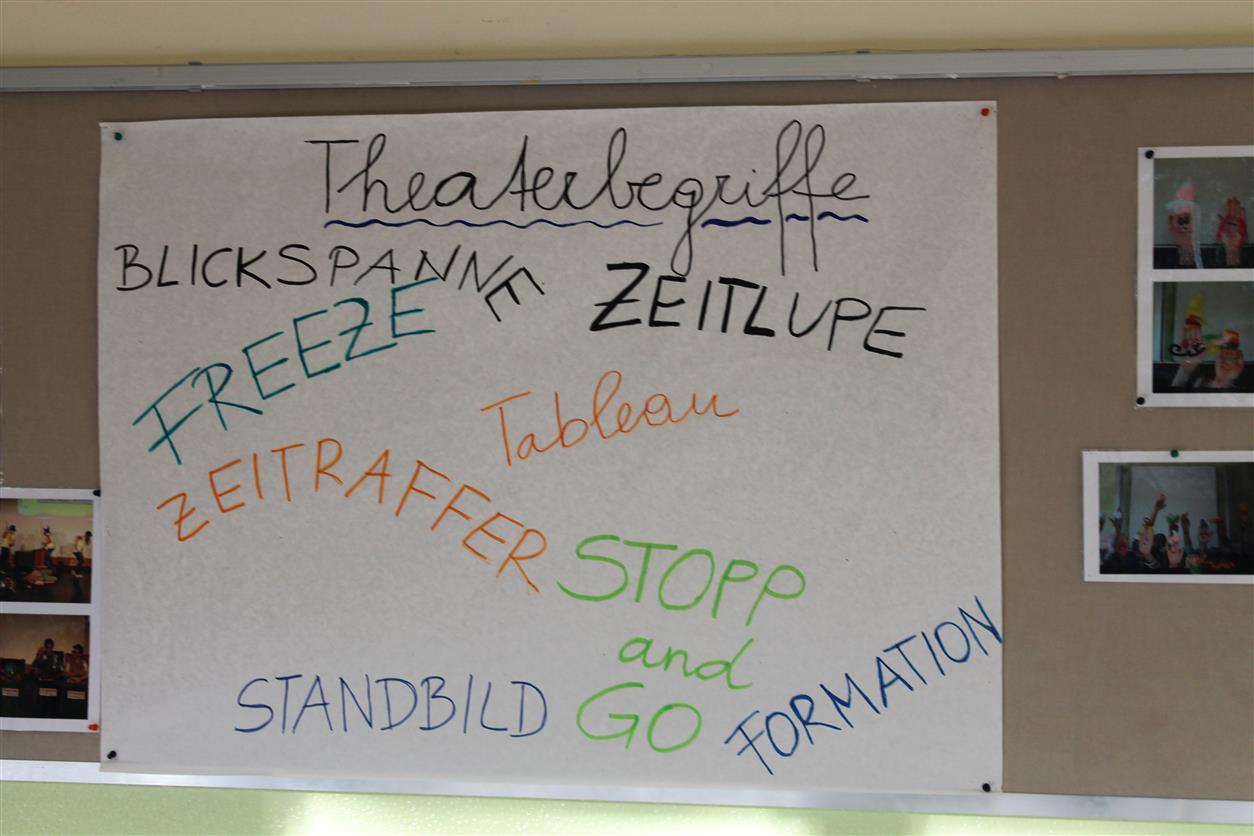 Theaterbegriffe
BLICKSPANNE
ZEITLUPE
FREEZE
Tableau
ZEITRAFFER
STOPP
and
GO
STANDBILD
FORMATION